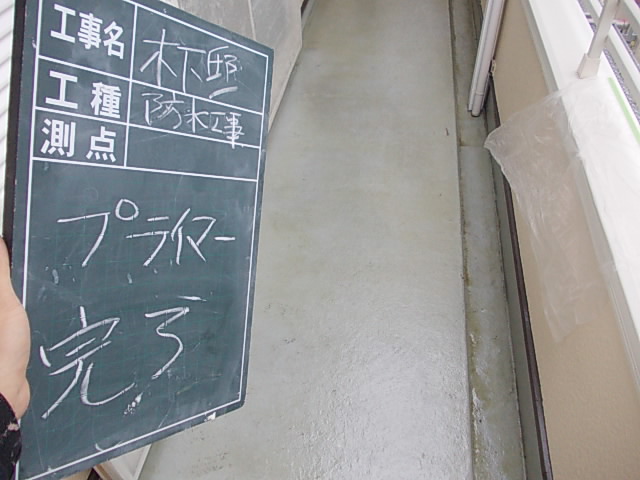 工事名 木下邸
工種 防水工事
測点
プライマー
完了